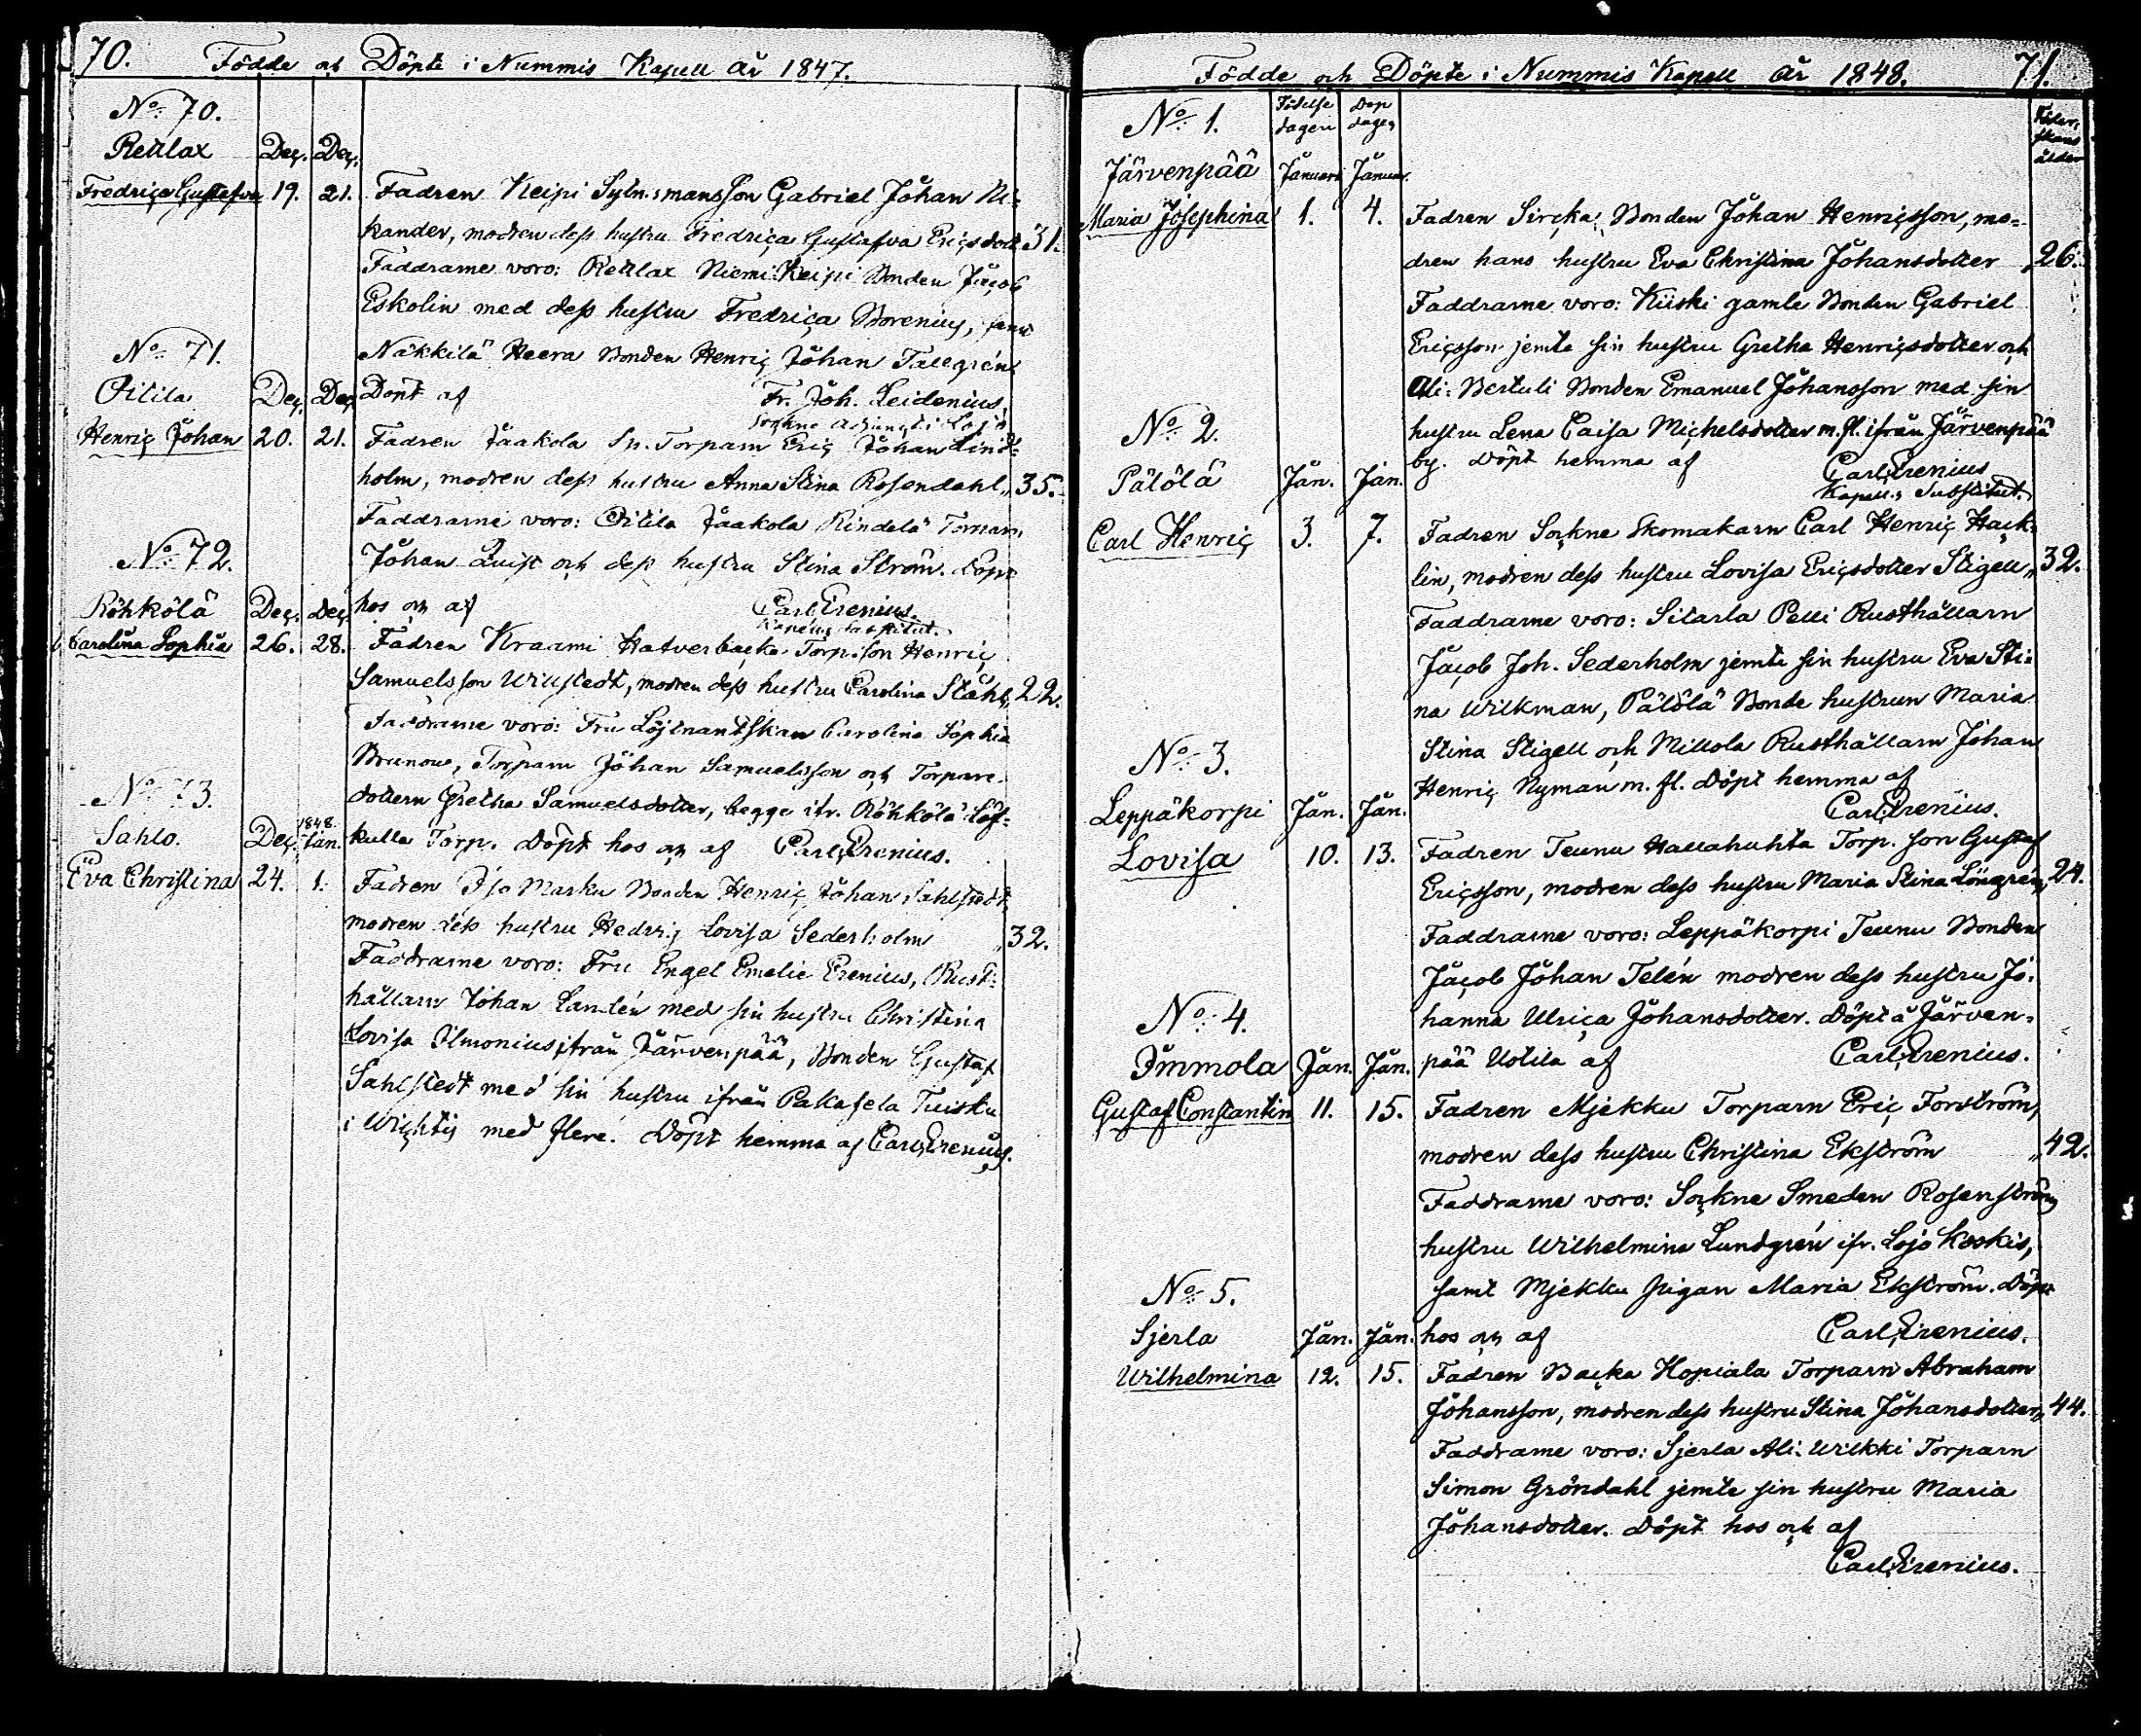 70. Födde och Döpte i Nummis Kapell År 1847.
No. 70.
Retlax Dec. Dec.
Fredrica Gustafva 19. 21. Fadren Keipi Sytn:smansson Gabriel Johan Ni-
kander, modren dess hustru Fredrica Gustafva Ericsdott. 31.
Faddrarne voro: Retlax Niemi Keipi Bonden Jacob
Eskolin med dess hustru Fredrica Borenius, samt
No. 71. Näkkilä Heera Bonden Henric Johan Tallgrén
Oitila Dec. Dec. Döpt af Fr. Joh. Leidenius,
Sockne Adjunct i Lojo
Henric Johan 20. 21. Fadren Jaakola Sn. Torparn Eric Johan Lind-
holm, modren dess hustru Anna Stina Rosendahl „ 35.
Faddrarne voro: Oitila Jaakola Rindelä Torparn
No. 72. Johan Quist och dess hustru Stina Ström. Döpt
Röhkölä Dec. Dec. hos och af Carl Erenius.
Kapells Substitut.
Carolina Sophia 26. 28. Fadren Kraami Hatverbacka Torp.son Henric
Samuelsson Willstedt, modren dess hustru Carolina Ståhl „ 22.
Faddrarne voro: Fru Löjtnantskan Carolina Sophia
Brunow, Torparn Johan Samuelsson och Torpare-
No. 73. dottern Gretha Samuelsdotter, begge ifr. Röhkölä Löf-
Sahlo. Dec. 1848. Jan. kulla Torp. Döpt hos och af Carl Erenius.
Eva Christina 24. 1. Fadren Iso Marku Bonden Henric Johan Sahlstedt,
modren dess hustru Hedvig Lovisa Sederholm „ 32.
Faddrarne voro: Fru Engel Emelie Erenius, Rust-
hållarn Johan Landén med sin hustru Christina
Lovisa Ilmonius ifrån Järvenpää, Bonden Gustaf
Sahlstedt med sin hustru ifrån Pakasela Tuisku
i Wichtis med flere. Döpt hemma af Carl Erenius.
Födde och Döpte i Nummis Kapell År 1848. 71.
No. 1. Födelse dagen Dop dagen
ålder
Järvenpää Januari Januar.
Maria Josephina 1. 4. Fadren Sircka Bonden Johan Henricsson, mo-
dren hans hustru Eva Christina Johansdotter „ 26.
Faddrarne voro: Kiiski gamle Bonden Gabriel
Ericsson jemte sin hustru Gretha Henricsdotter och
Ali: Bertuli Bonden Emanuel Johansson med sin
No. 2. hustru Lena Caisa Michelsdotter m.fl. ifrån Järvenpää
by. Döpt hemma af Carl Erenius
Kapells Substitut.
Pälölä Jan. Jan.
Carl Henric 3. 7. Fadren Sockne Skomakarn Carl Henric Hack-
lin, modren dess hustru Lovisa Ericsdotter Stigell „ 32.
Faddrarne voro: Sitarla Pelli Rusthållarn
Jacob Joh. Sederholm jemte sin hustru Eva Sti-
na Wikman, Pälölä Bonde hustrun Maria
No. 3. Stina Stigell och Millola Rusthållarn Johan
Henric Nyman m. fl. Döpt hemma af
Leppäkorpi Jan. Jan. Carl Erenius.
Lovisa 10. 13. Fadren Teunu Hallahuhta Torp. son Gustaf
Ericsson, modren dess hustru Maria Stina Löngrén „ 24.
Faddrarne voro: Leppäkorpi Teunu Bonden
Jacob Johan Telén modren dess hustru Jo-
No. 4. hanna Ulrica Johansdotter. Döpt å Järven-
Immola Jan. Jan. pää Uotila af Carl Erenius.
Gustaf Constantin 11. 15. Fadren Mjekku Torparn Eric Forström,
modren dess hustru Christina Ekström „ 42.
Faddrarne voro: Sockne Smeden Rosenströms
hustru Wilhelmina Lundgrén ifr. Lojo Koskis,
No. 5. samt Mjekku pigan Maria Ekström. Döpt
Sjerla Jan. Jan. hos och af Carl Erenius.
Wilhelmina 12. 15. Fadren Backa Hopiala Torparn Abraham
Johansson, modren dess hustru Stina Johansdotter „ 44.
Faddrarne voro: Sjerla Ali: Wilkki Torparn
Simon Gröndahl jemte sin hustru Maria
Johansdotter. Döpt hos och af
Carl Erenius.